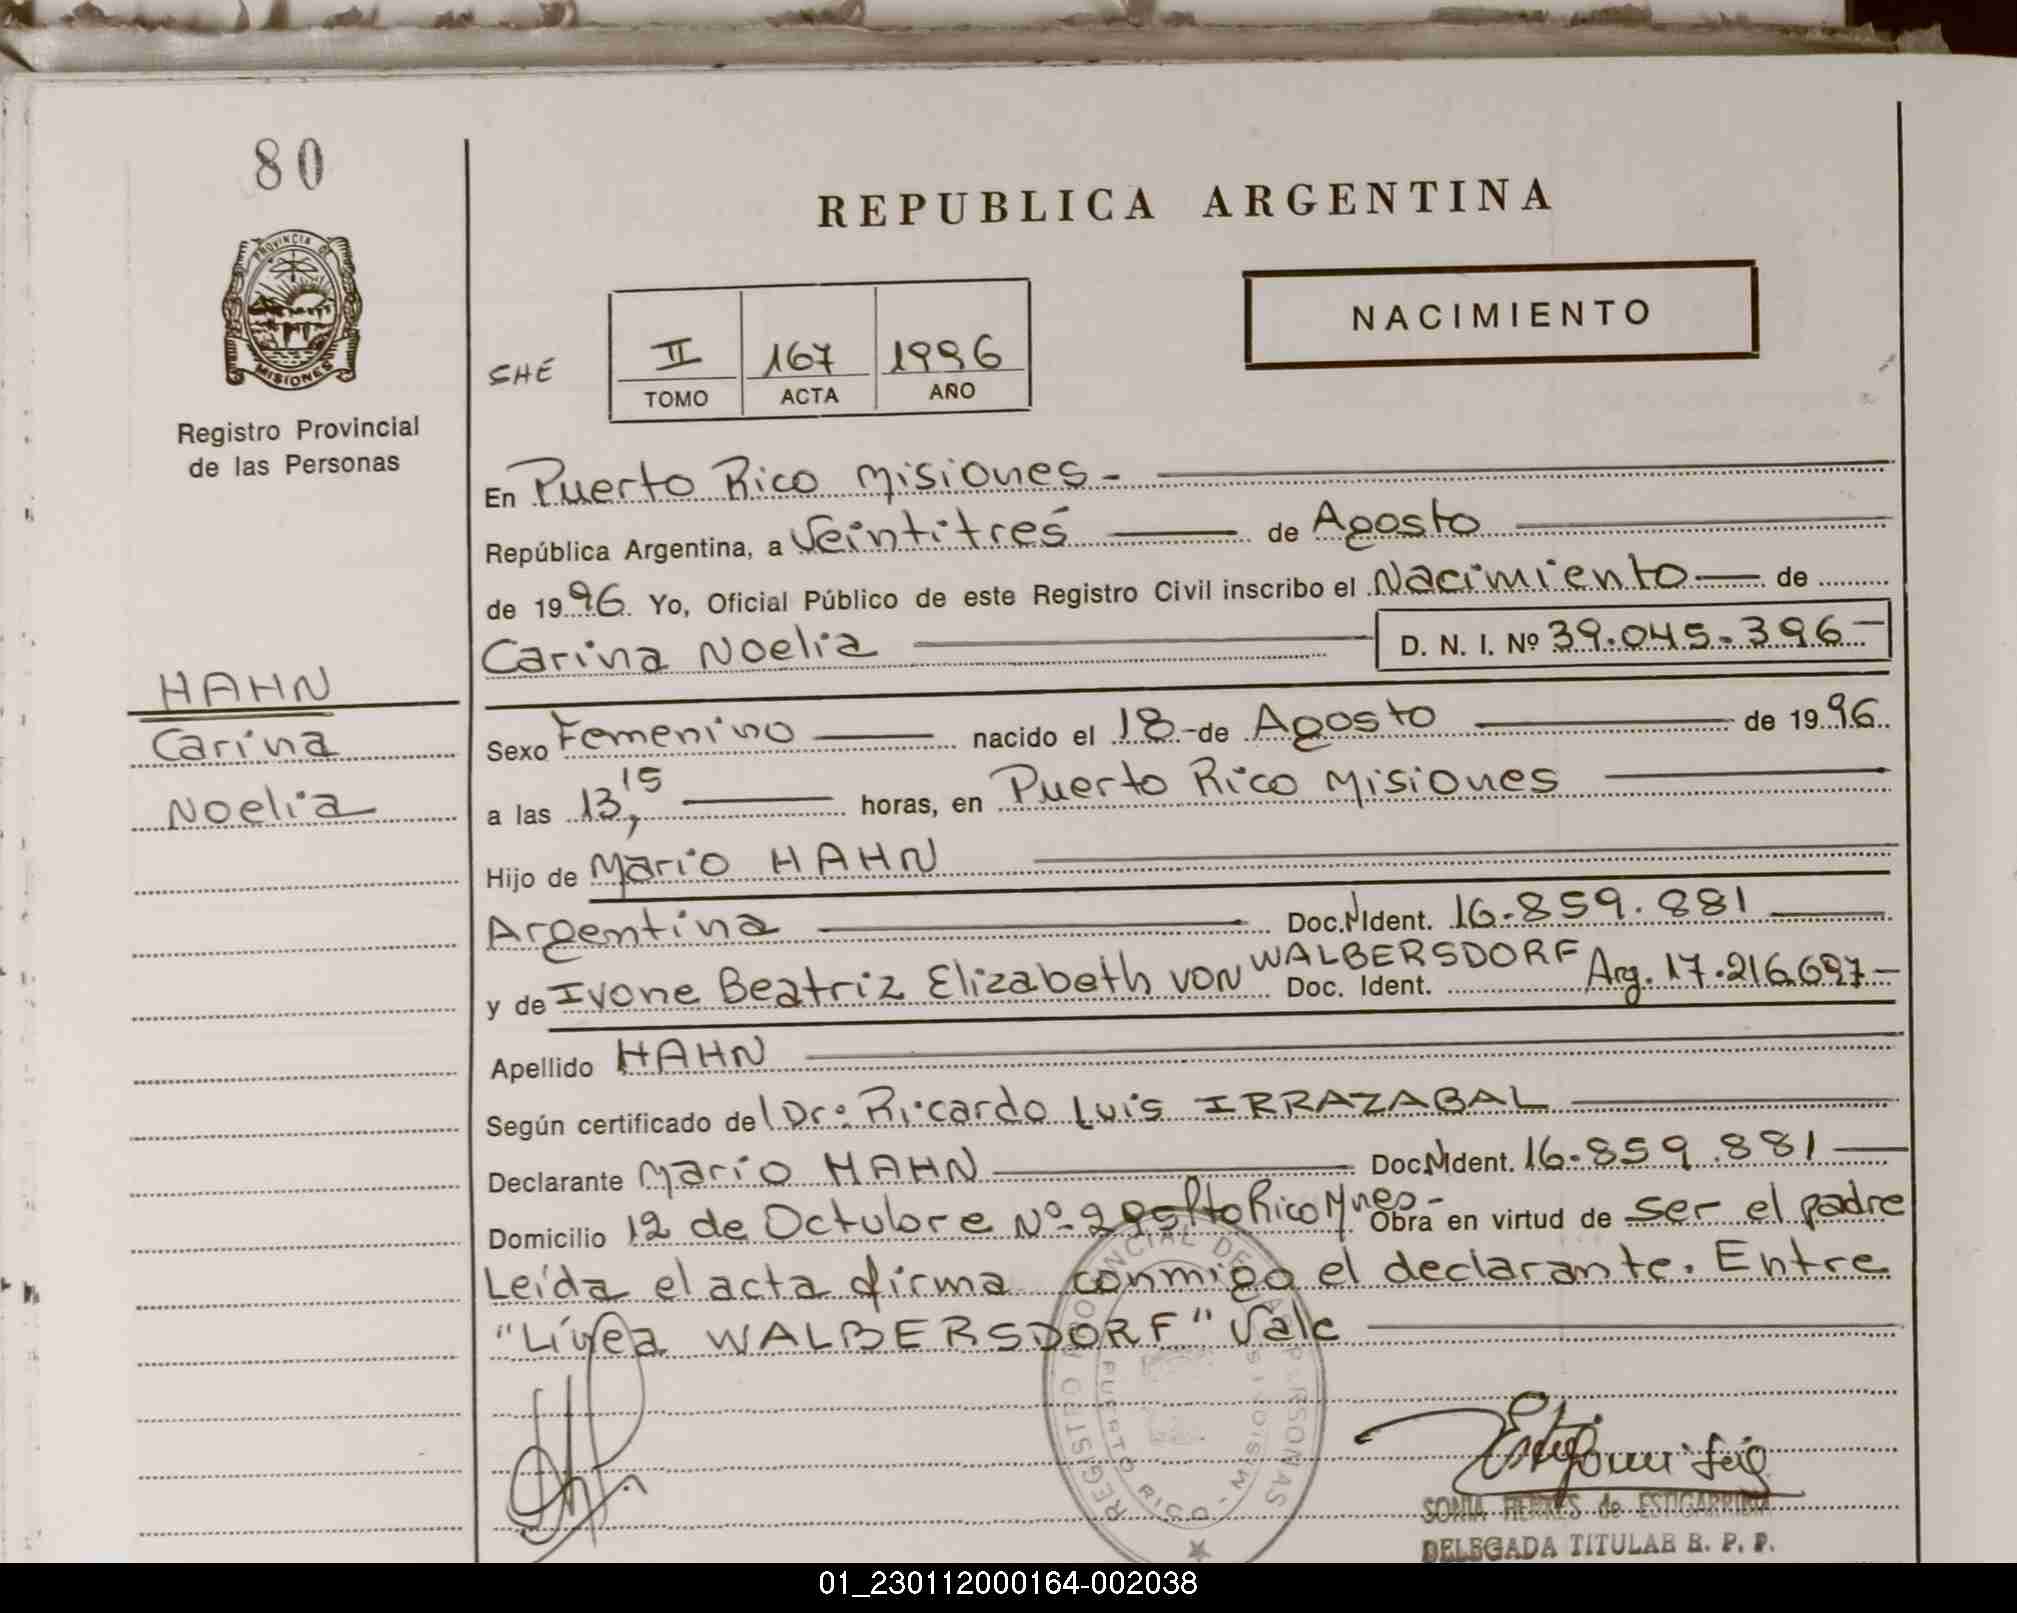 80
REPUBLICA ARGENTINA
PROVINCIA DE
MISIONES
NACIMIENTO
SHE
II 167 1996
TOMO ACTA AÑO
Registro Provincial
de las Personas
En Puerto Rico Misiones -
República Argentina, a Veintitrés de Agosto
de 1996 Yo, Oficial Público de este Registro Civil inscribo el Nacimiento de
Carina Noelia D. N. I. Nº 39.045.396
HAHN
Carina
Noelia
Sexo Femenino nacido el 18 - de Agosto de 1996
a las 13,15 horas, en Puerto Rico Misiones
Hijo de Mario HAHN
Argentina Doc.NIdent. 16.859.881
y de Ivone Beatriz Elizabeth von WALBERSDORF Doc. Ident. Arg. 17.216.697-
Apellido HAHN
Según certificado del Dr: Ricardo Luis IRRAZABAL
Declarante Mario HAHN Doc.NIdent. 16.859.881
Domicilio 12 de Octubre Nº Pto Rico Mnes- Obra en virtud de ser el padre
Leída el acta firma conmigo el declarante. Entre
"Línea WALBERSDORF" Vale
REGISTRO PROVINCIAL DE LAS PERSONAS
PUERTO RICO - MISIONES
SONIA de ESTIGARRIBIA
DELEGADA TITULAR R. P. P.
01_230112000164-002038